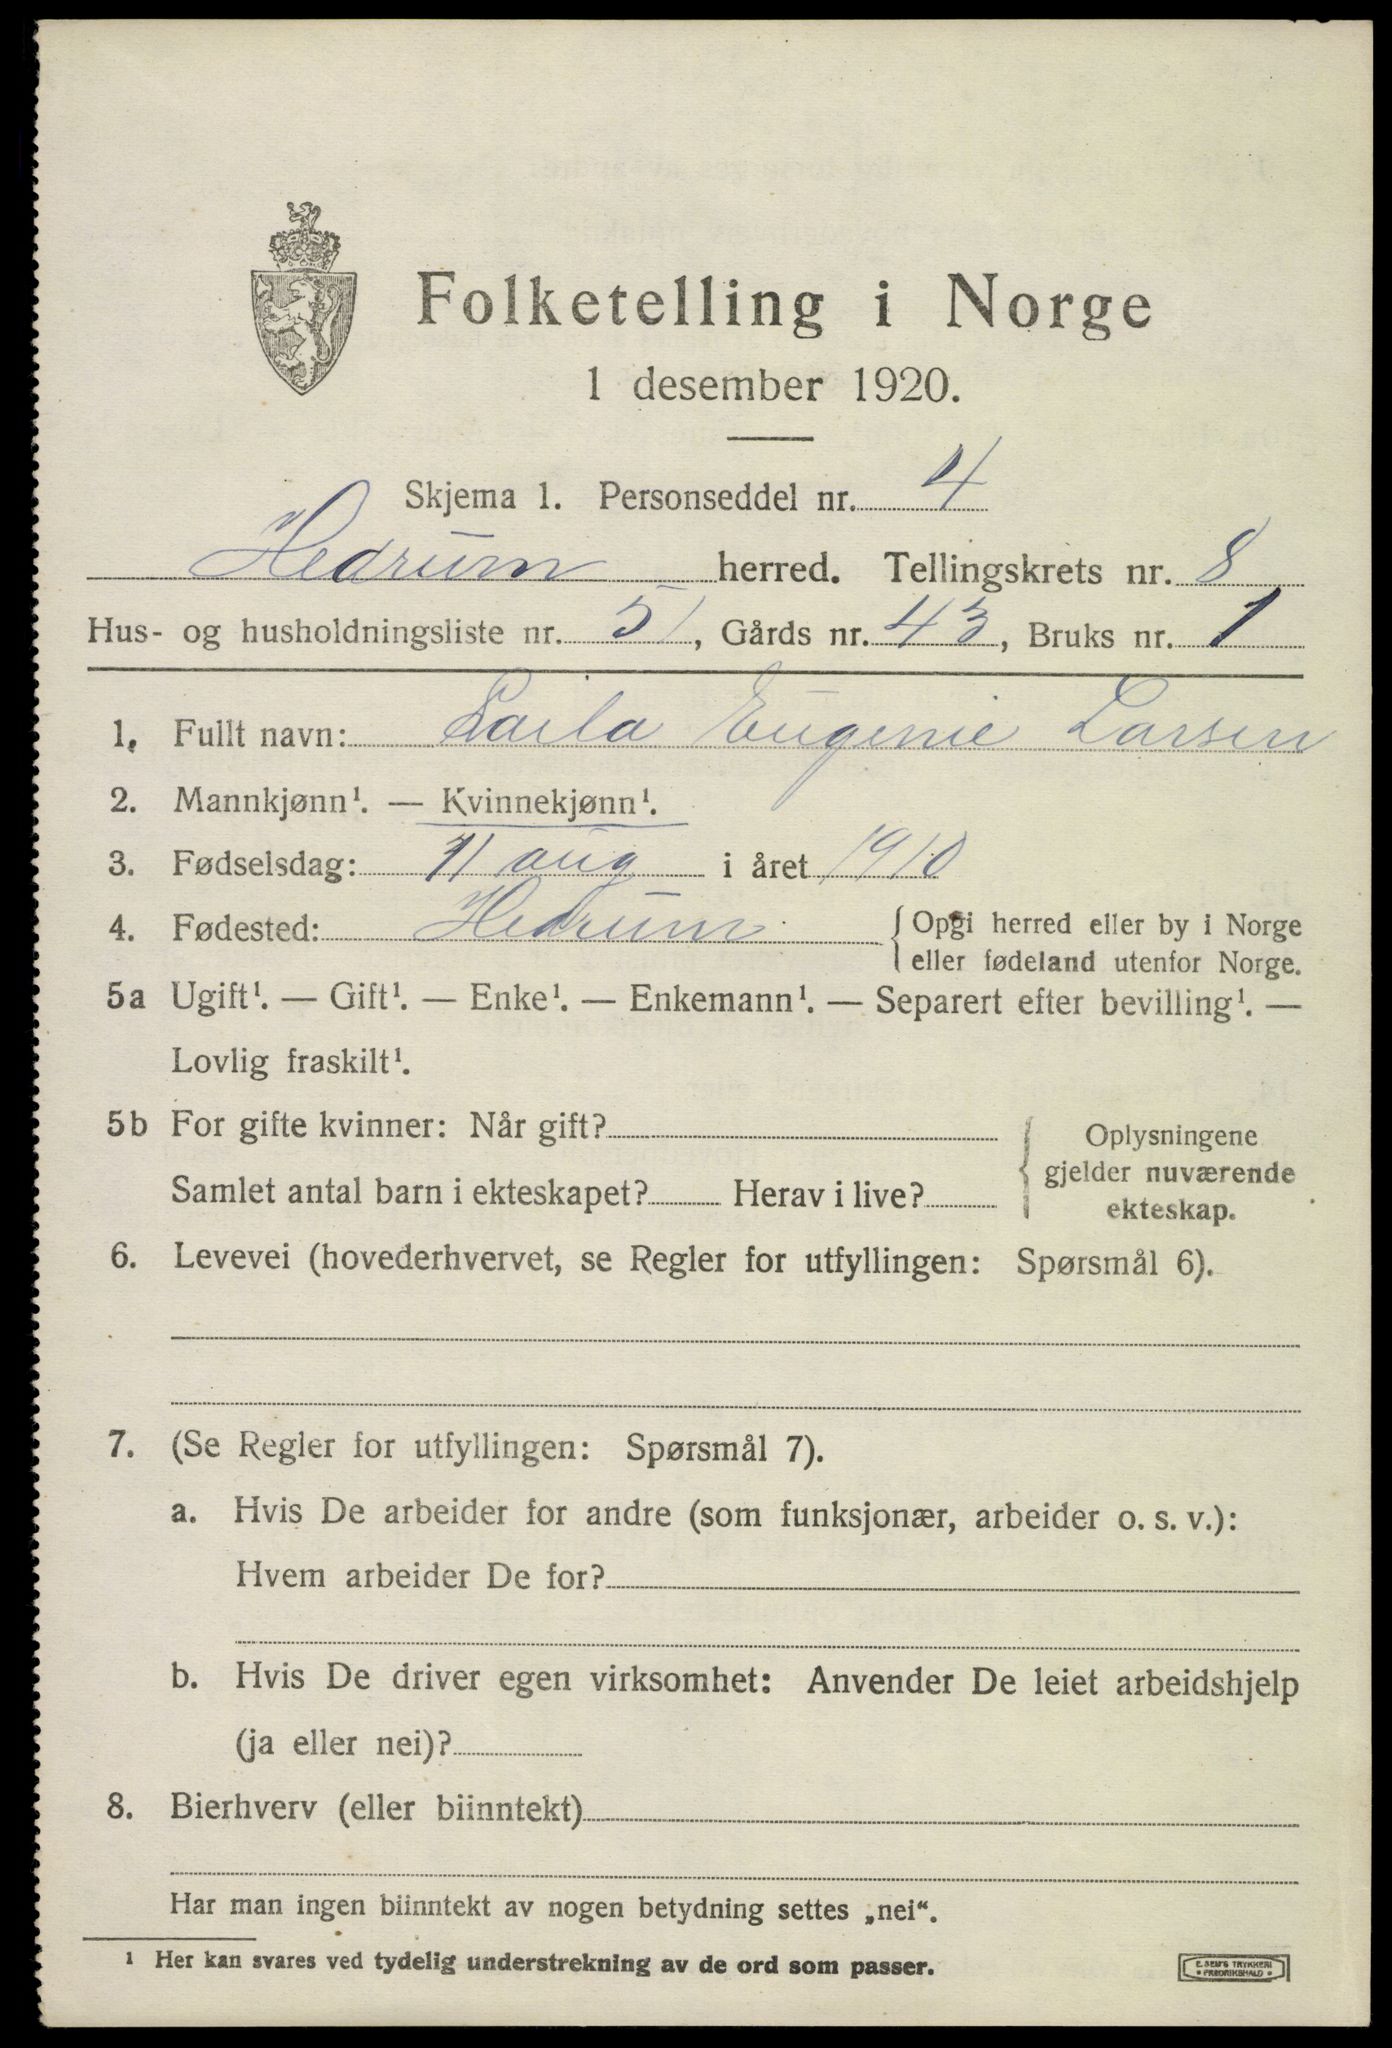 Folketelling i Norge
1 desember 1920.
Skjema 1. Personseddel nr. 4
Hedrum herred. Tellingskrets nr. 8
Hus- og husholdningsliste nr. 51, Gårds nr. 43, Bruks nr. 1
1. Fullt navn: Laila Eugenie Larsen
2. Mannkjønn¹. — Kvinnekjønn¹.
3. Fødselsdag: 11 aug i året 1910
4. Fødested: Hedrum { Opgi herred eller by i Norge
eller fødeland utenfor Norge.
5a Ugift¹. — Gift¹. — Enke¹. — Enkemann¹. — Separert efter bevilling¹. —
Lovlig fraskilt¹.
5b For gifte kvinner: Når gift?
Samlet antal barn i ekteskapet? Herav i live?
{ Oplysningene
gjelder nuværende
ekteskap.
6. Levevei (hovederhvervet, se Regler for utfyllingen: Spørsmål 6).
7. (Se Regler for utfyllingen: Spørsmål 7).
a. Hvis De arbeider for andre (som funksjonær, arbeider o. s. v.):
Hvem arbeider De for?
b. Hvis De driver egen virksomhet: Anvender De leiet arbeidshjelp
(ja eller nei)?
8. Bierhverv (eller biinntekt)
Har man ingen biinntekt av nogen betydning settes „nei“.
¹ Her kan svares ved tydelig understrekning av de ord som passer.
E. SEM'S TRYKKERI
• FREDRIKSHALD •